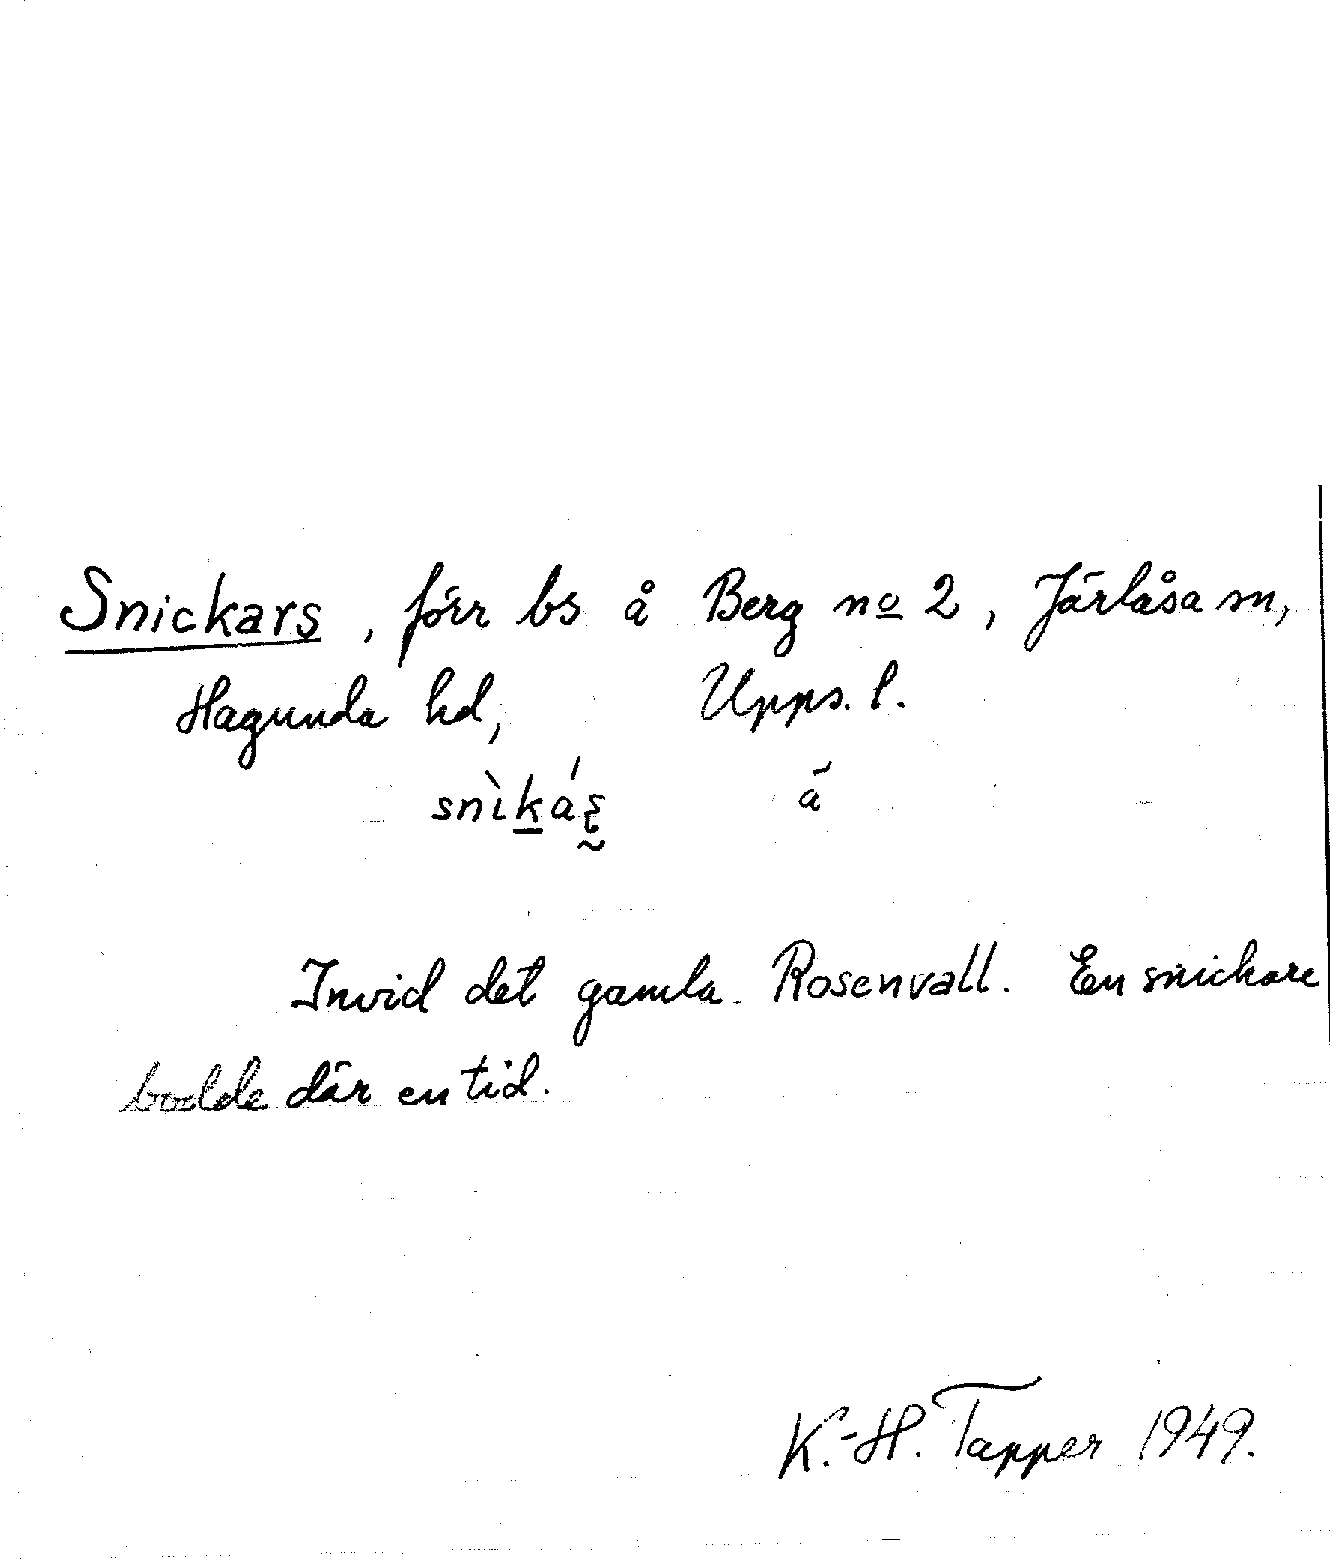 Snickars, förr bs å Berg no 2, Järlåsa sn,
Hagunda hd, Upps. l.
å
Invid det gamla Rosenvall. En snickare
bodde där en tid.
K.-H. Tapper 1949.